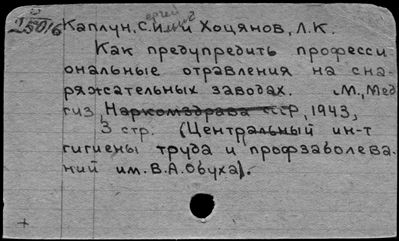 25016 Каплун, С.И. и Хоцянов, Л.К.
Как предупредить професси
ональные отравления на сна-
ряжательных заводах. М., Мед
гиз, Наркомздрава СССР, 1943,
3 стр. (Центральный ин-т
гигиены труда и профзаболева-
ний им. В.А. Обуха).